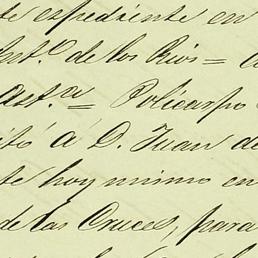 te espediente en
Ant.º de los Rios = A
Asf.ª = Policarpo
itó á D. Juan de
te hoy mismo en
de las Cruces, para